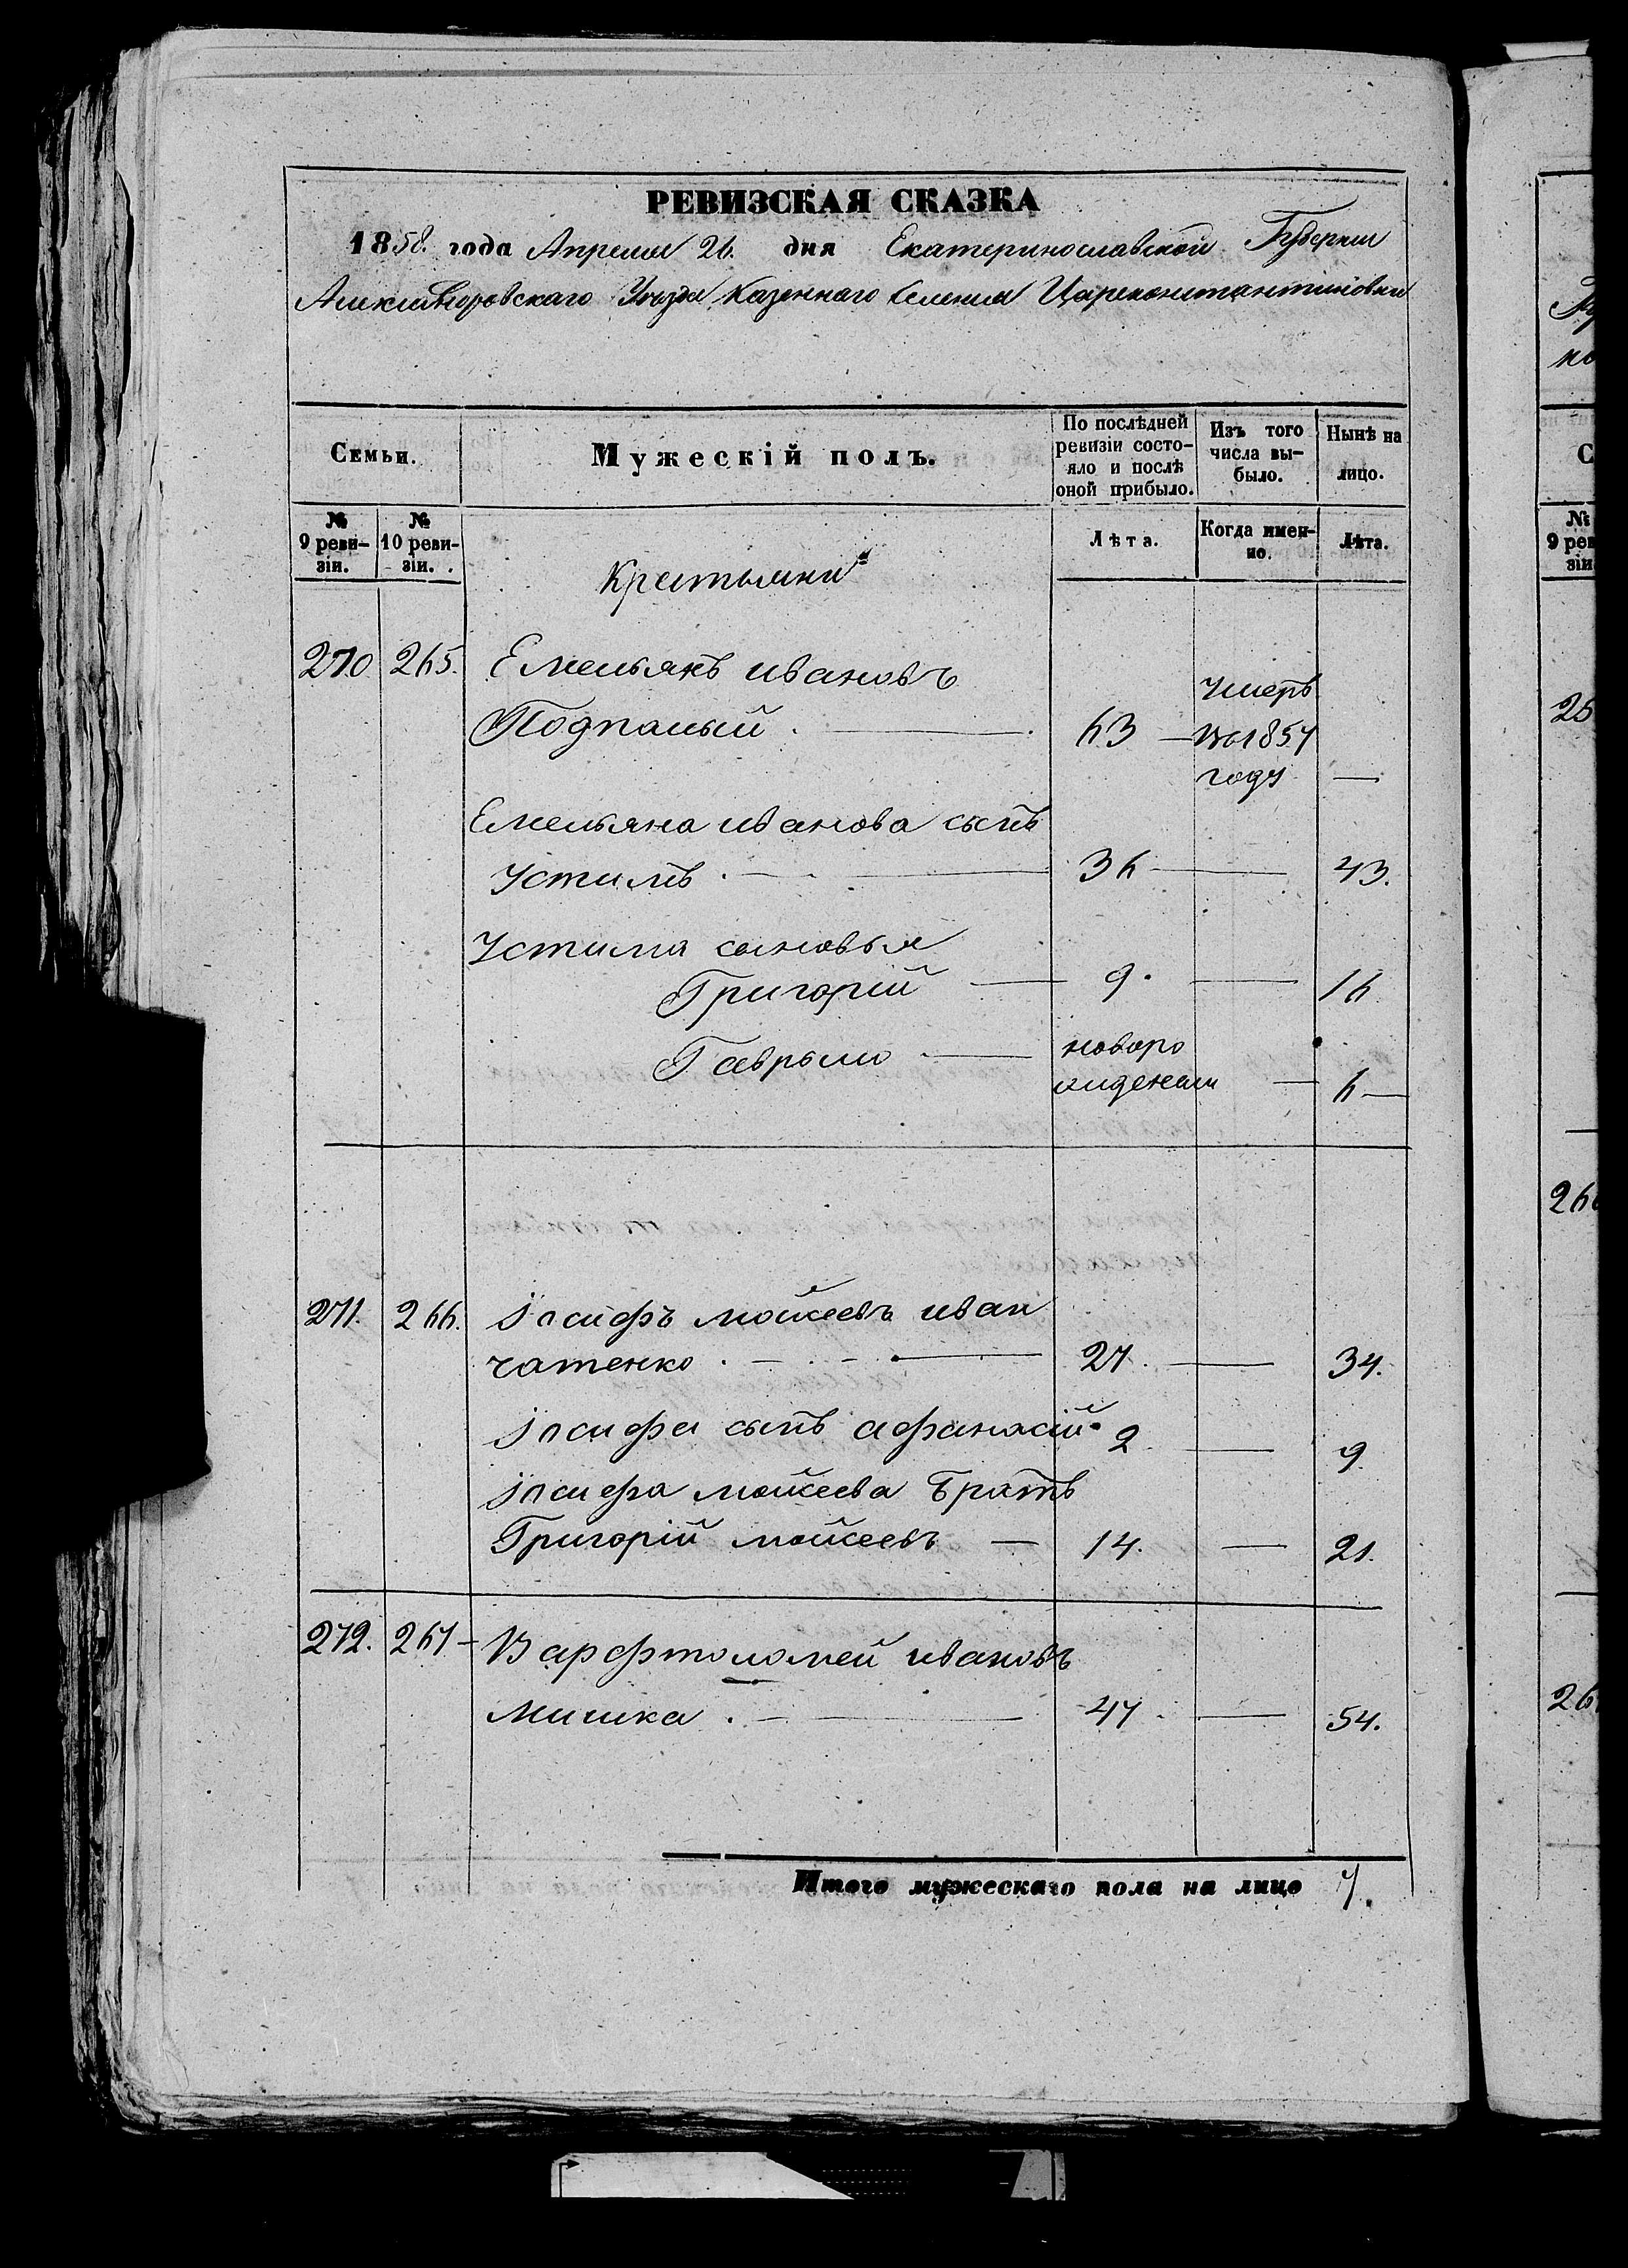 РЕВИЗСКАЯ СКАЗКА
1858. года Апреля 26. дня Екатеринославской Губернии
Александровскаго Уѣзда Казеннаго Селения Цареконстантиновки
Семьи.
Мужескій полъ.
По послѣдней ревизіи состо-яло и послѣ оной прибыло.
Изъ того числа вы-было.
Нынѣ на лицо.
№ 9 реви-зіи.
№ 10 реви-зіи.
Лѣта.
Когда имен-но.
Лѣта.
Крестьяни
270 265. Емельянъ ивановъ
Подпалый 63 умеръ во 1857 году —
Емельяна иванова сынъ
Устимъ 36 — 43.
Устима сыновья
Григорій — 9. — 16
Гаврыло — новоро жидены — 6 —
271. 266. Іосифъ мойсеевъ иван
чатенко 27. — 34.
Іосифа сынъ афанасій 2 — 9
Іосифа мойсеева братъ
Григорій мойсеевъ — 14. — 21.
272. 267 Варфтоломей ивановъ
Мишка 47 — 54.
Итого мужескаго пола на лицо 7.
С
№ 9 рев зіи